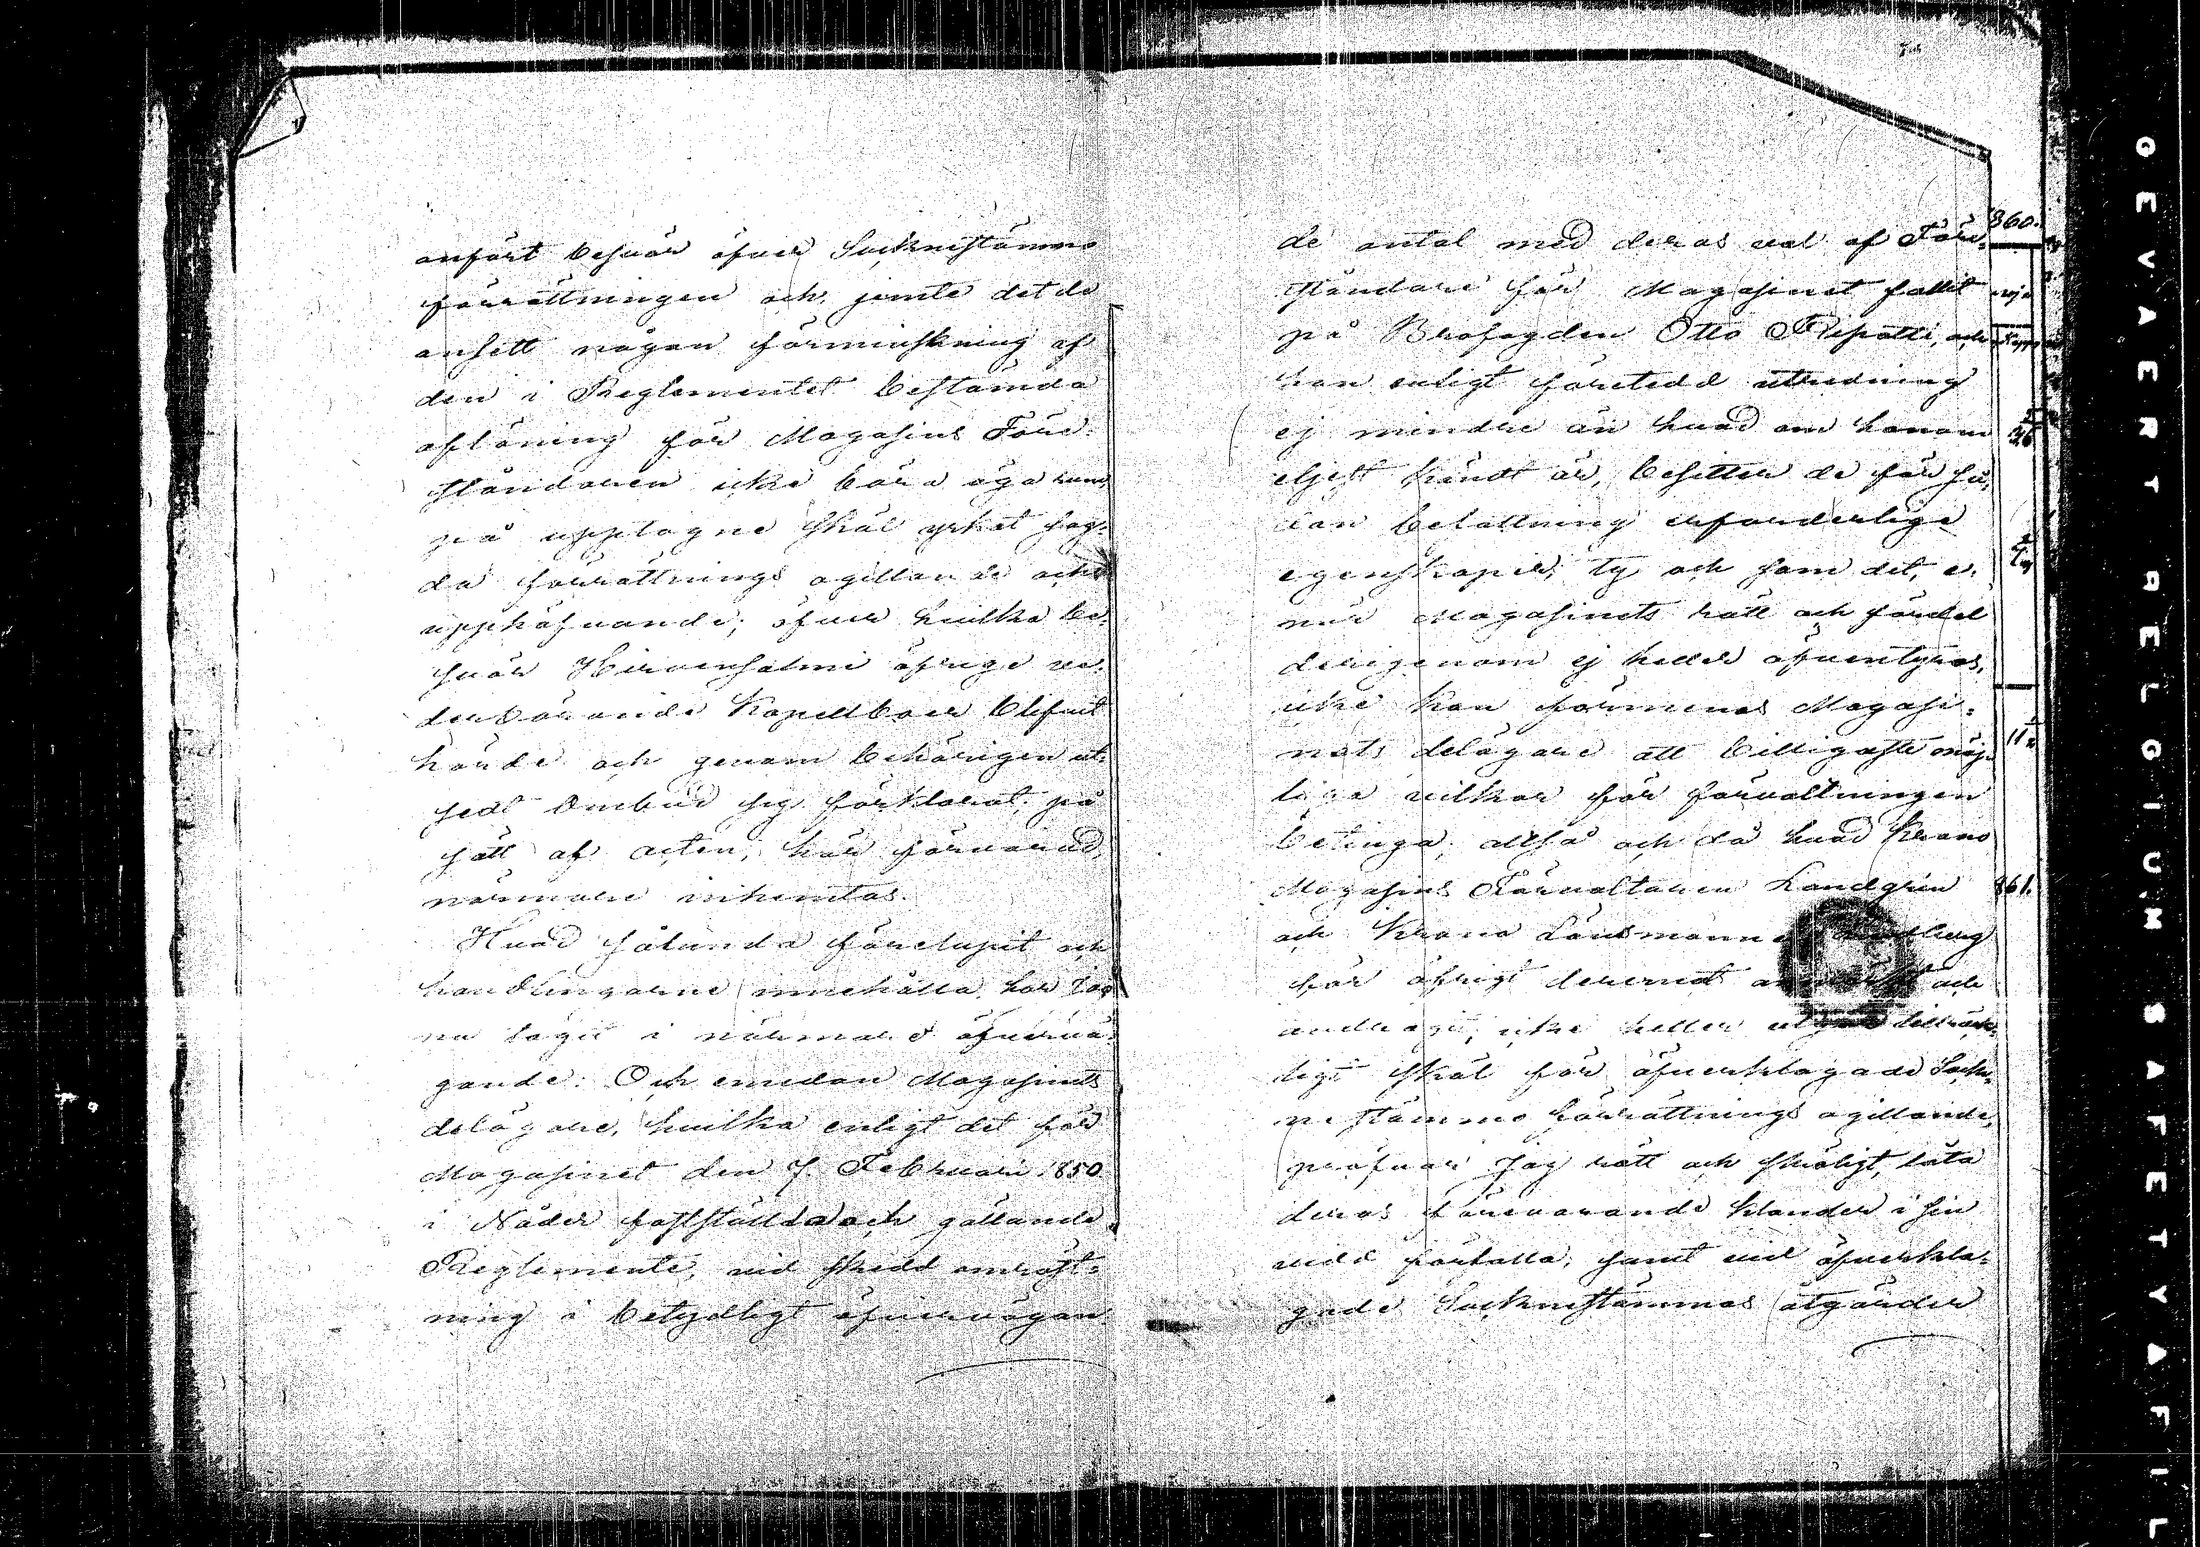 anfört besvär öfver Socknestämmo
förrättningen och, jemte det de
ansett någon förminskning af
den i Reglementet bestämda
aflöning för Magasins Före-
ståndaren icke böra äga rum,
på upptagne skäl yrkat sag-
da förrättnings ogillande och
upphäfvande; öfver hvilka be-
svär Hirvensalmi öfrige ve-
derbörande Kapellboer blifvit
hörde och genom behörigen ut-
sedt Ombud sig förklarat, på
sätt af acten, här förvarad,
närmare inhemtas.
Hvad sålunda förelupit och
handlingarne innehålla har jag
nu tagit i närmare öfvervä-
gande: Och emedan Magasinets
delägare, hvilka enligt det för
Magasinet den 7 Februari 1850
i Nåder fastställda och gällande
Reglemente, vid skedd omröst-
ning i betydligt öfvervägan-
de antal med deras val af Före-
ståndare för Magasinet fallit
på Brofogden Otto Ripatti, och
han enligt företedd utredning
ej mindre än hvad om honom
eljest kändt är, besitter de för så-
dan befattning erforderlige
egenskaper, ty och som det, e-
när Magasinets rätt och fördel
derigenom ej heller äfventyras,
icke kan förmenas Magasi-
nets delägare att billigaste möj-
liga vilkor för förvaltningen
betinga, alltså och då hvad Krono
Magasins Förvaltaren Landgren
och Krono Länsmannen
för öfrigt deremot och
andragit, icke heller utgör tillräck-
ligt skäl för öfverklagade Sock-
nestämmo förrättnings ogillande,
pröfvar Jag rätt och skäligt, låta
deras förevarande klander i sin
vidd förfalla, samt vid öfverkla-
gade Socknestämmas åtgärder
860.
861.
GEVAERT BELGIUM SAFETY FIL